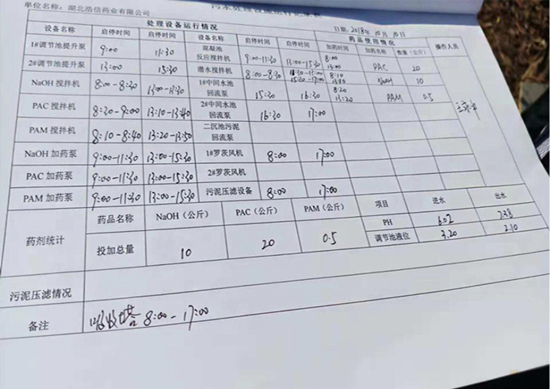 单位名称：湖北浩信药业有限公司
处理设备运行情况 药品使用情况
设备名称 启停时间 启停时间 设备名称 启停时间 启停时间 加药时间 加药名称 数量（公斤） 操作人员
1#调节池提升泵 9:00 11:30 反应搅拌机 9:00-11:30 PAC 20
2#调节池提升泵 13:00 15:30 潜水搅拌机 8:00-8:30 NaOH 10
NaOH 搅拌机 8:00-8:30 13:00-13:30 1#中间水池回流泵 15:30 16:30 PAM 0.5
PAC 搅拌机 8:30-9:00 13:10-13:40 2#中间水池回流泵 16:30 17:00
PAM 搅拌机 8:10-8:40 13:20-13:50 二沉池污泥回流泵
NaOH 加药泵 9:00-11:30 13:00-15:30 1#罗茨风机 8:00 17:00
PAC 加药泵 9:00-11:30 13:00-15:30 2#罗茨风机
PAM 加药泵 9:00-11:30 13:00-15:30 污泥压滤设备 8:00 17:00
药剂统计 药品名称 NaOH（公斤） PAC（公斤） PAM（公斤） 项目 进水 出水
投加总量 10 20 0.5 PH
调节池液位 3.20 2.10
污泥压滤情况
备注 吸收塔 8:00-17:00